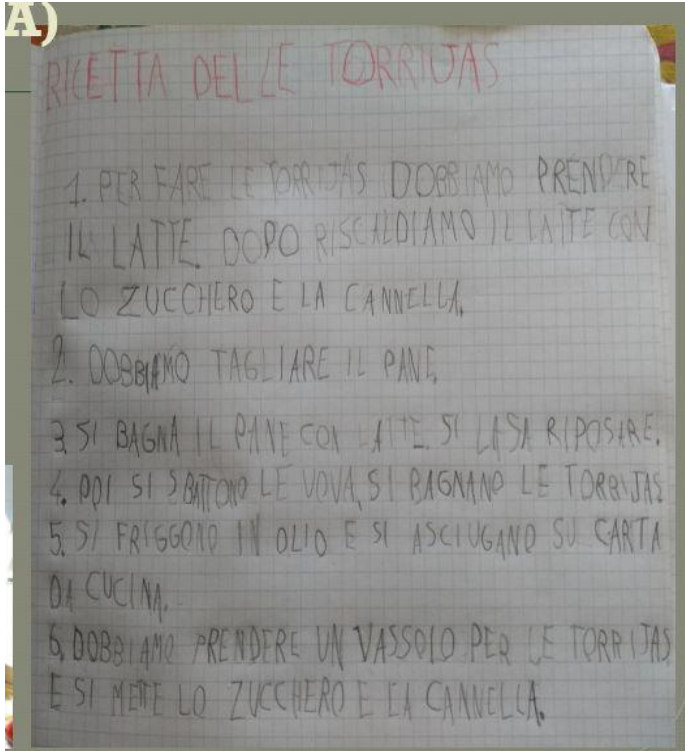 A)
RICETTA DELLE TORRIJAS
1. PER FARE LE TORRIJAS DOBBIAMO PRENDERE
IL LATTE. DOPO RISCALDIAMO IL LATTE CON
LO ZUCCHERO E LA CANNELLA.
2. DOBBIAMO TAGLIARE IL PANE.
3. SI BAGNA IL PANE CON LATTE. SI LASA RIPOSARE.
4. POI SI SBATTONO LE UOVA, SI BAGNANO LE TORRIJAS
5. SI FRIGGONO IN OLIO E SI ASCIUGANO SU CARTA
DA CUCINA.
6. DOBBIAMO PRENDERE UN VASSOLO PER LE TORRIJAS
E SI METTE LO ZUCCHERO E LA CANNELLA.